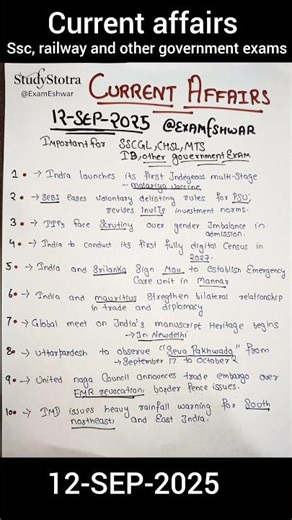 Current affairs
Ssc, railway and other government exams
StudyStotra
@ExamEshwar
CURRENT AFFAIRS
12-SEP-2025 @EXAMESHWAR
Important for SSCGL, CHSL, MTS
IB, other government Exam
1 → India launches its first Indegenous multi-Stage
malariya vaccine
2 → SEBI eases voluntary delisting rules for PSU,
revises InvITs investment norms.
3 → IITs face Scrutiny over gender Imbalance in
admission.
4 → India to conduct its first fully digital Census in
2027.
5 → India and Srilanka Sign Mou to establish Emergency
Care unit in Mannar
6 → India and mauritius Stregthen bilateral relationship
in trade and diplomacy
7 → Global meet on India's manuscript Heritage begins
→ In Newdelhi
8 → Uttarpardesh to observe "Seva Pakhwada" from
→ September 17 to October 2
9 → United naga Council announces trade embargo over
FMR revocation, border fence issues.
10 → IMD issues heavy rainfall warning for South
northeast, and East India.
12-SEP-2025